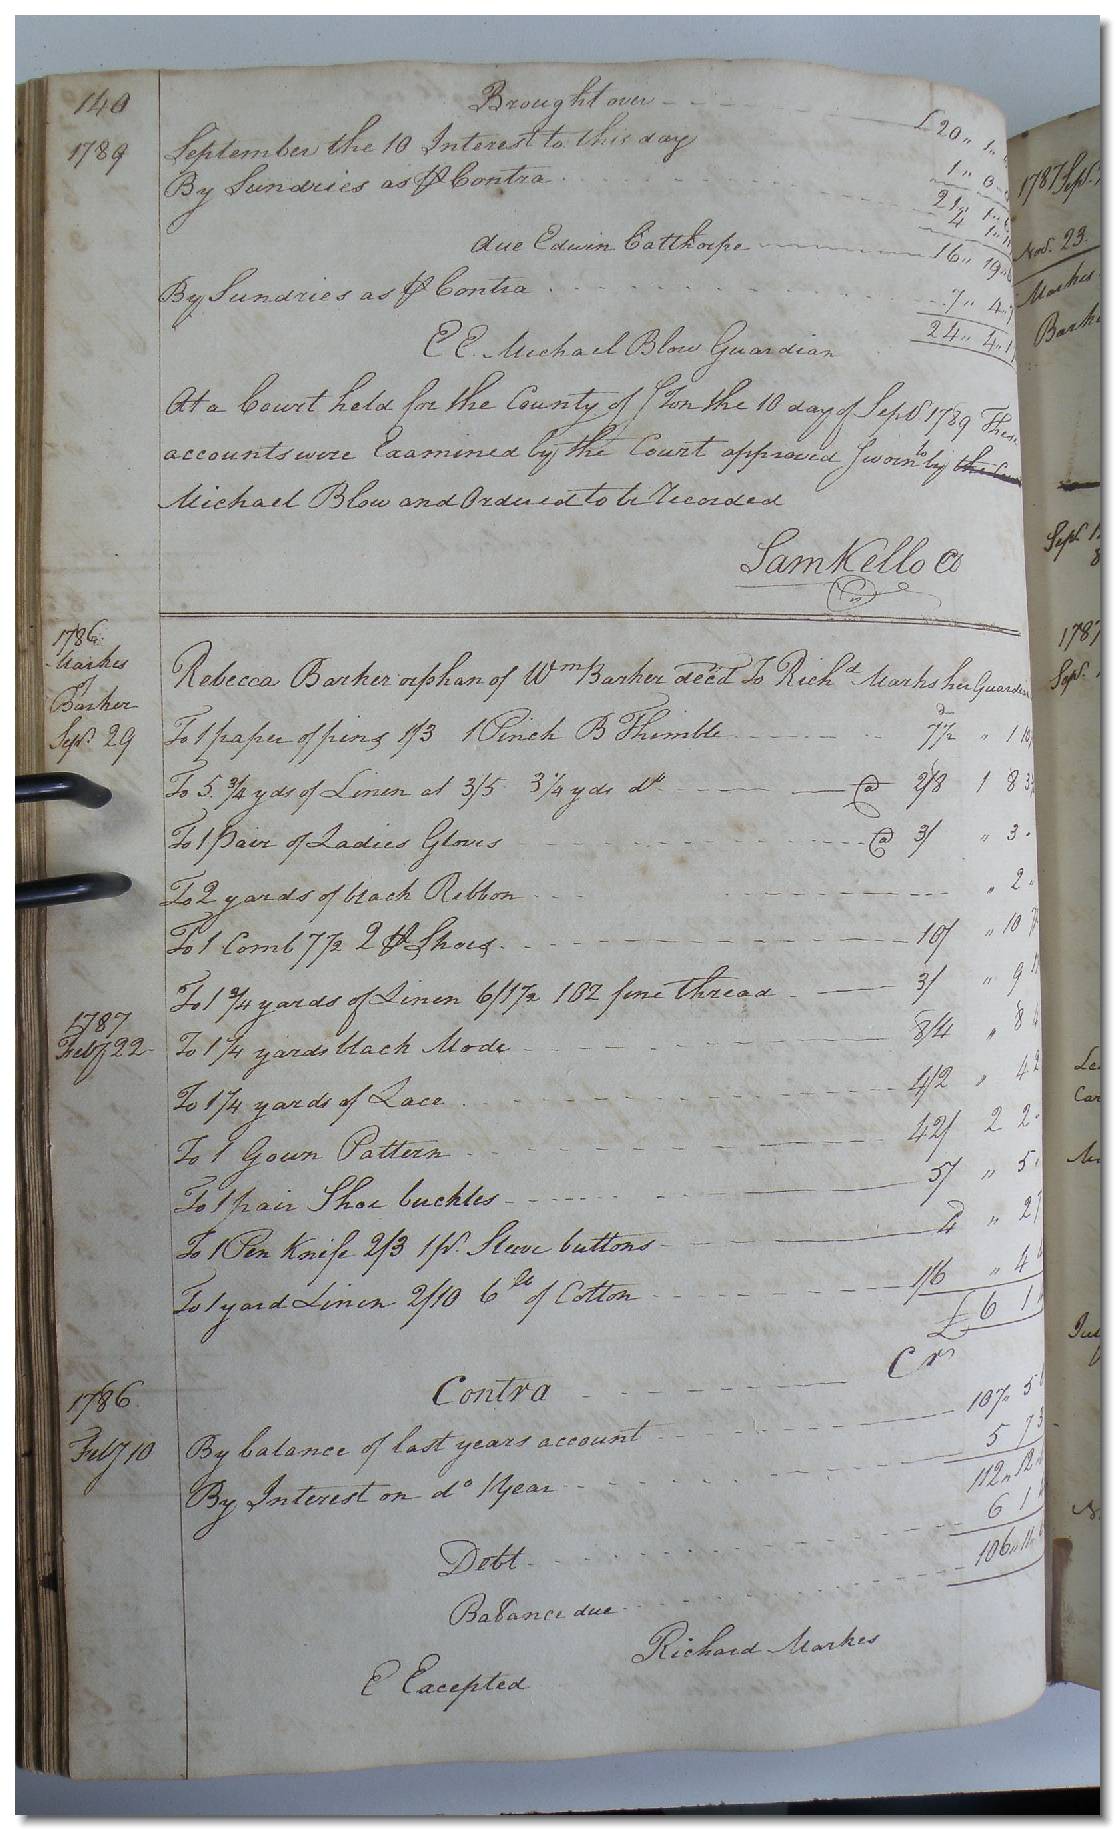 140 Brought over £20 " 1 "
1789 September the 10 Interest to this day 1 " 0
By Sundries as ₱ Contra 21 " 1
4 " 1
due Edwin Calthorpe 16 " 19 "
By Sundries as ₱ Contra 7 " 4 "
24 " 4 "
E E. Michael Blow Guardian
At a Court held for the County of the 10 day of Sept. 1789 These
accounts were Examined by the Court approved Sworn to by
Michael Blow and Ordered to be Recorded
Sam Kello Cl
1786
Markes
&
Barker
Rebecca Barker orphan of Wm Barker decd To Richd Marks her Guardian
Sepr. 29 To 1 paper of pins 1/3 1 Pinch B Thimble 7½ " 1
To 5 ¾ yds of Linen at 3/5 3¼ yds do @ 2/8 1 8 3
To 1 pair of Ladies Gloves @ 3/ " 3 "
To 2 yards of black Ribbon " 2 "
To 1 Comb 7½ 2 ₱ Shoes 10/ " 10
To 1 ¾ yards of Linen 6/1½ 1 oz fine thread 3/ " 9
1787
Feby 22 To 1¼ yards black Mode 8/4 " 8
To 1¼ yards of Lace 4/2 " 4 2
To 1 Gown Pattern 42/ 2 2 "
To 1 pair Shoe buckles 5/ " 5 "
To 1 Pen Knife 2/3 1 pr. Sleeve buttons " 2
To 1 yard Linen 2/10 6 lb of Cotton 1/6 " 4
£6 1
1786 Contra Cr
Feby 10 By balance of last years account 107 " 5
By Interest on do 1 Year 5 7 3
112 " 12
Debt 6 1
Balance due 106 " 11 "
Richard Markes
E Excepted
1787 Sepr.
Nov. 23
Markes
Sepr.
1787
Sepr.